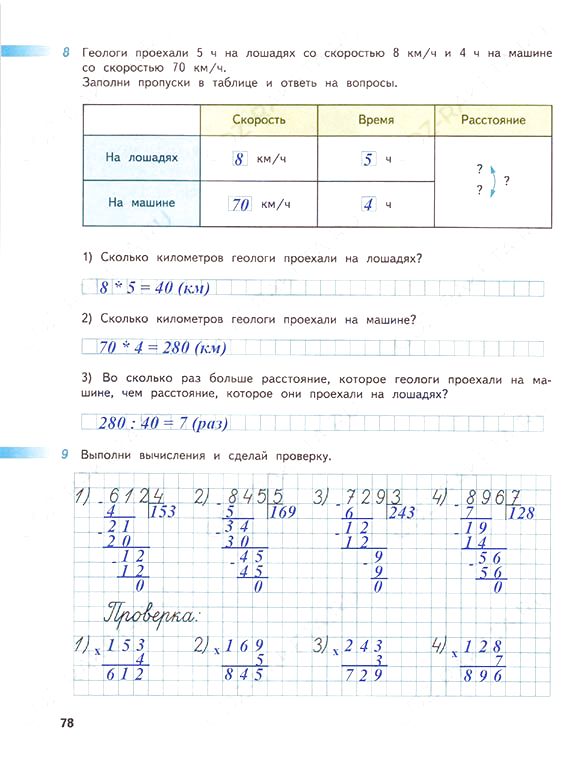 8 Геологи проехали 5 ч на лошадях со скоростью 8 км/ч и 4 ч на машине
со скоростью 70 км/ч.
Заполни пропуски в таблице и ответь на вопросы.
Скорость Время Расстояние
На лошадях 8 км/ч 5 ч ?
?
На машине 70 км/ч 4 ч ?
1) Сколько километров геологи проехали на лошадях?
8 * 5 = 40 (км)
2) Сколько километров геологи проехали на машине?
70 * 4 = 280 (км)
3) Во сколько раз больше расстояние, которое геологи проехали на ма-
шине, чем расстояние, которое они проехали на лошадях?
280 : 40 = 7 (раз)
9 Выполни вычисления и сделай проверку.
1) - 612 4 2) - 845 5 3) - 729 3 4) - 896 7
4 153 5 169 6 243 7 128
- 21 - 34 - 12 - 19
20 30 12 14
- 12 - 45 - 9 - 56
12 45 9 56
0 0 0 0
Проверка:
1) x 153 2) x 169 3) x 243 4) x 128
4 5 3 7
612 845 729 896
78